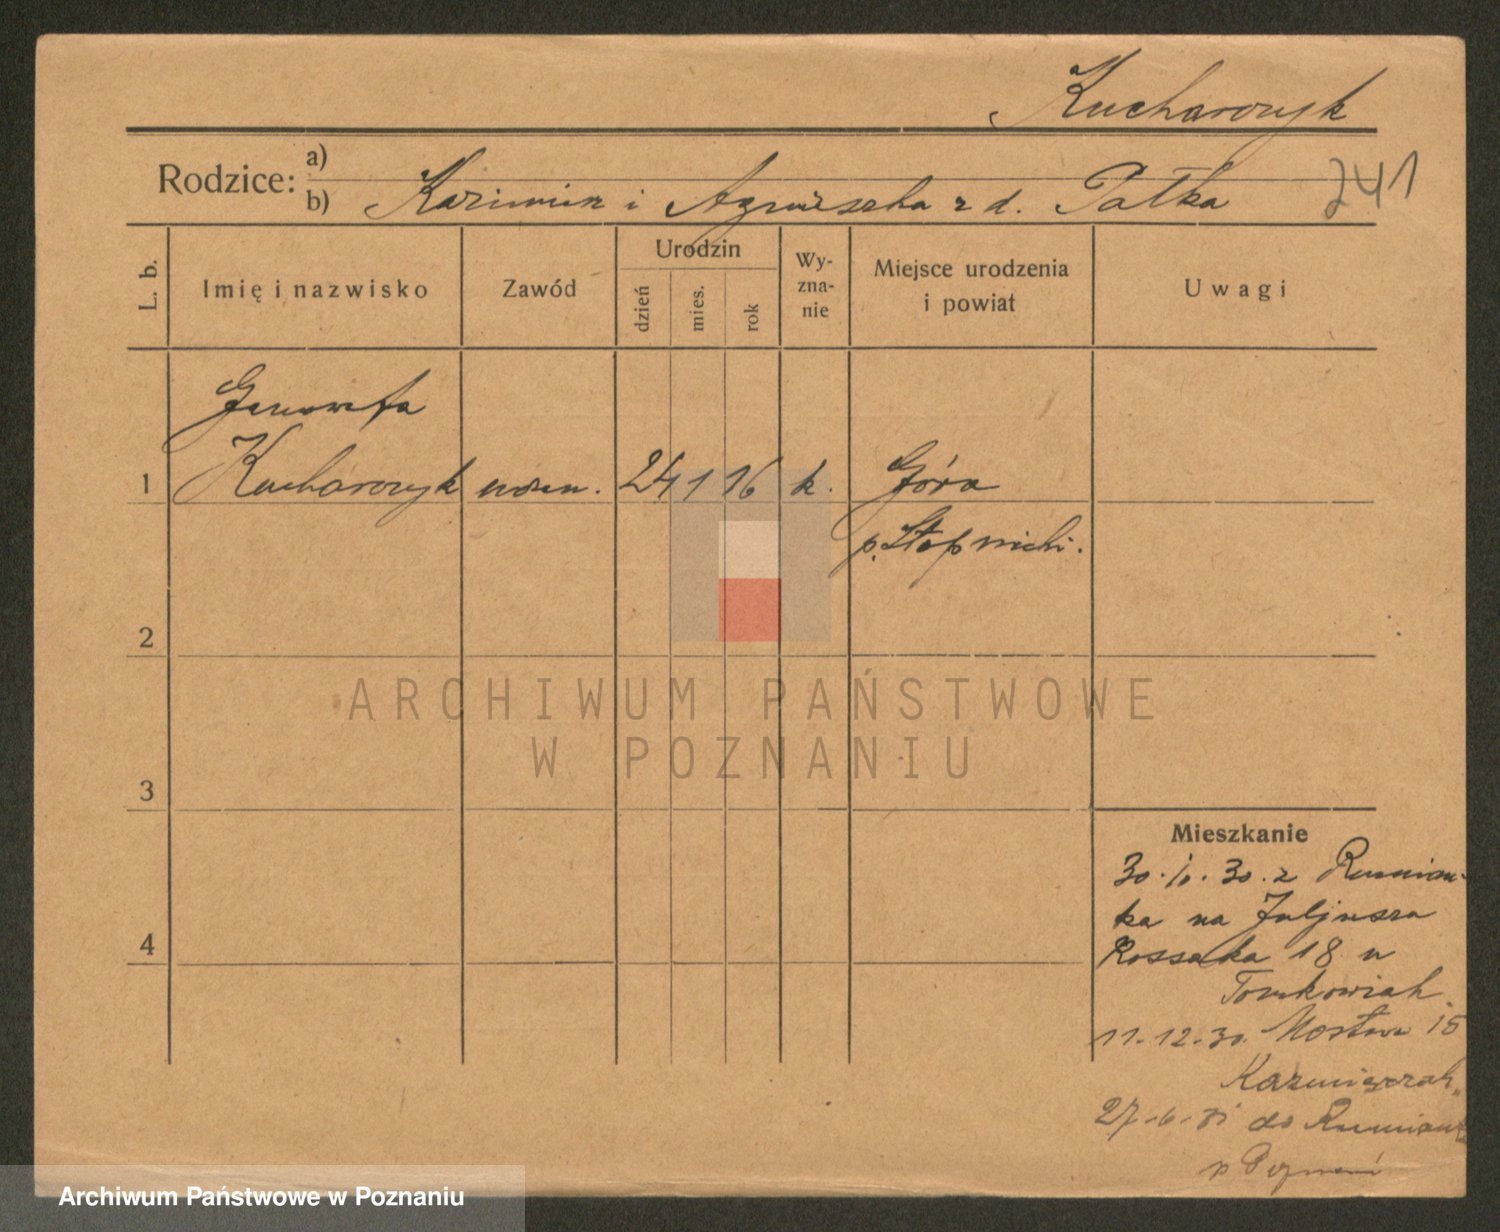 Kucharczyk
Rodzice: a)
b) Kazimierz i Agnieszka z d. Pałka
241
L. b.
Imię i nazwisko
Zawód
Urodzin
dzień
mies.
rok
Wy-
zna-
nie
Miejsce urodzenia
i powiat
Uwagi
Genowefa
1 Kucharczyk uczen. 24 1 16 k. Góra
p. Stopnicki.
2
3
4
ARCHIWUM PAŃSTWOWE
W POZNANIU
Mieszkanie
30.10.30. z Rumian-
ka na Juljusza
Kossaka 18 u
Tomkowiak.
11-12-30. Mostowa 15
Kaźmierczak
27-6-31 do Rumianka
p Poznań
Archiwum Państwowe w Poznaniu